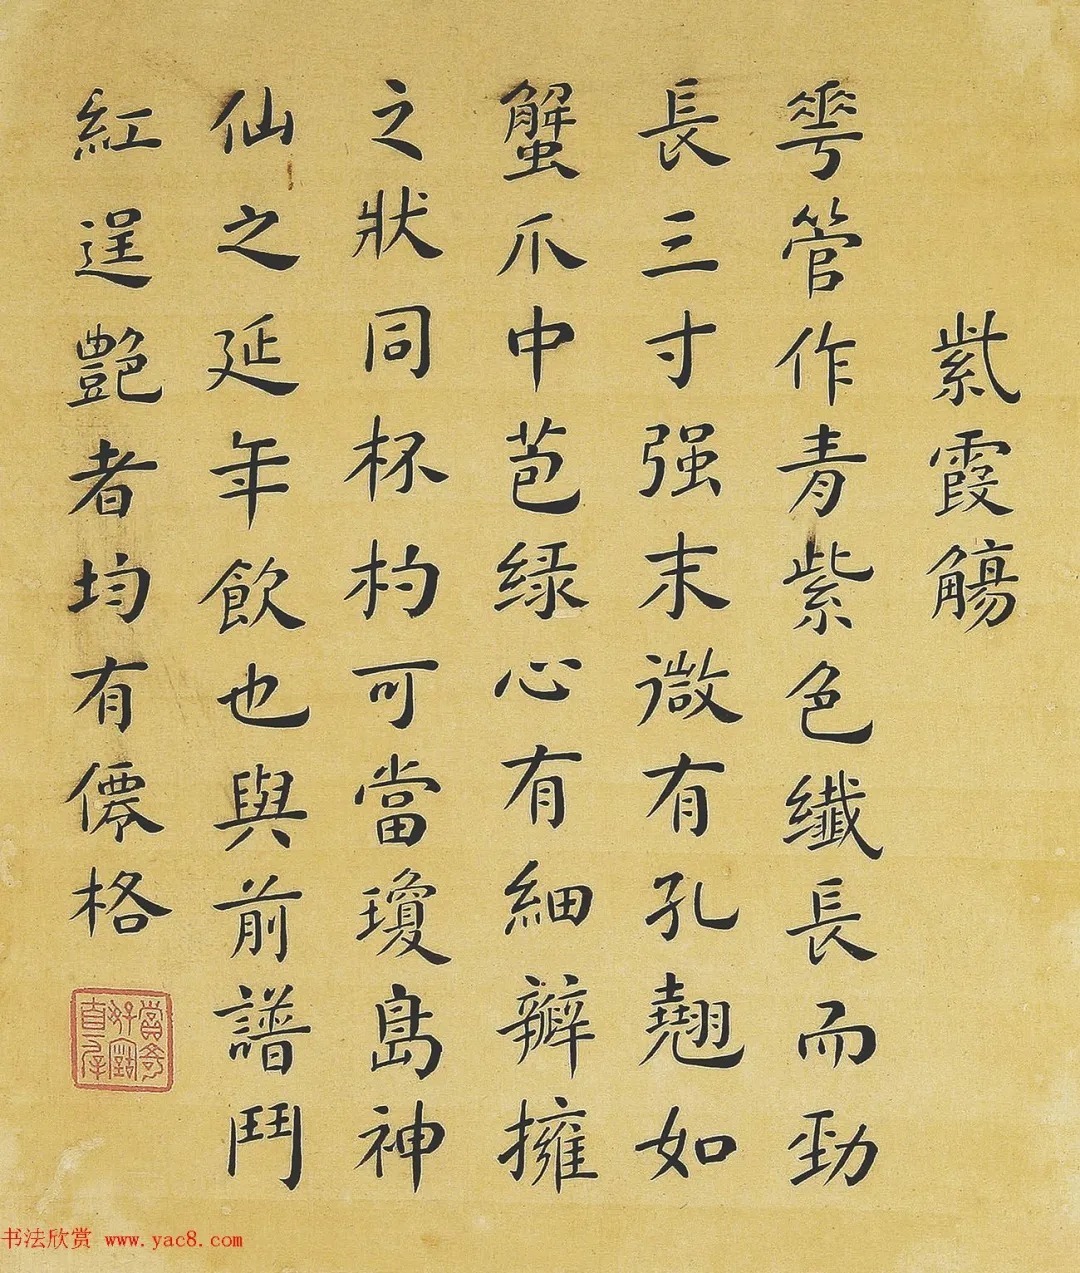 紫霞觴
蕚管作青紫色纖長而勁
長三寸强末微有孔翹如
蟹爪中苞緑心有細瓣擁
之狀同杯杓可當瓊島神
仙之延年飲也與前譜鬥
紅逞艷者均有僊格
书法欣赏 www.yac8.com